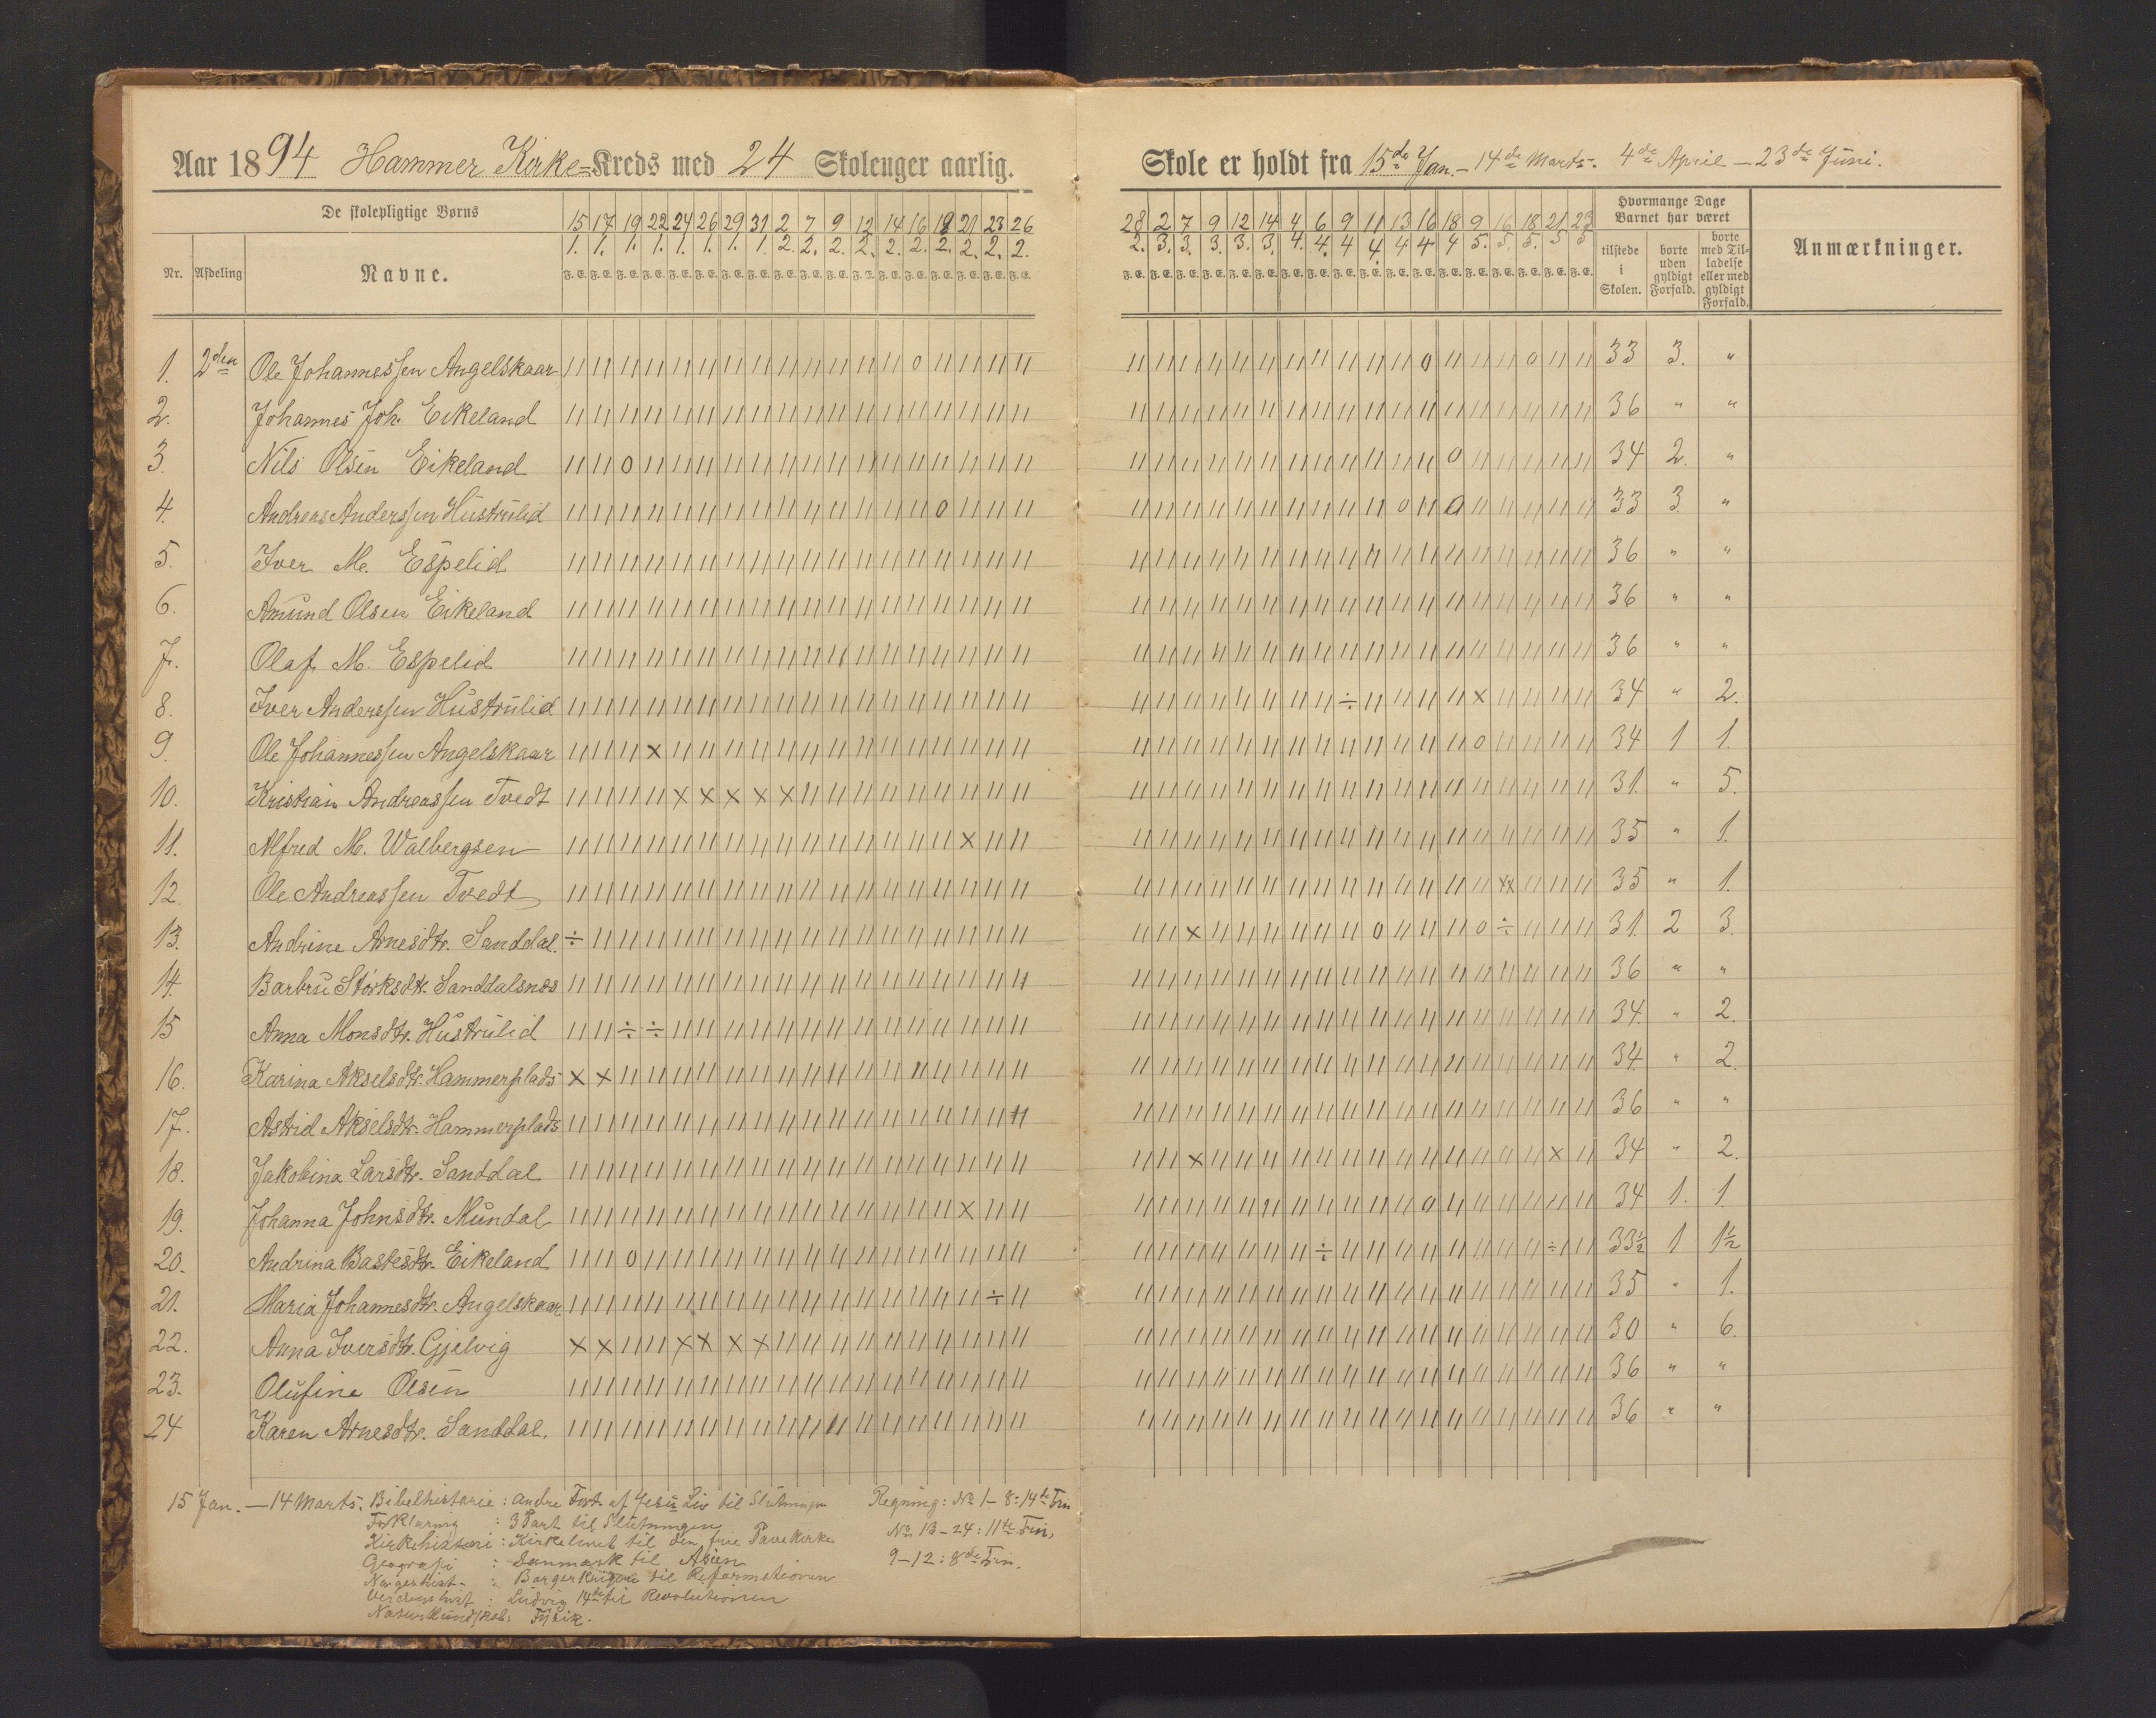 Aar 1894 Hammer Kirke=Kreds med 24 Skoleuger aarlig.
De skolepligtige Børns
15 17 19 22 24 26 29 31 2 7 9 12 14 16 19 21 23 26
1. 1. 1. 1. 1. 1. 1. 1. 2. 2. 2. 2. 2. 2. 2. 2. 2. 2.
Nr. Afdeling Navne. F. E. F. E. F. E. F. E. F. E. F. E. F. E. F. E. F. E. F. E. F. E. F. E. F. E. F. E. F. E. F. E. F. E. F. E.
1. 2den Ole Johannessen Angelskaar
2. Johannes Joh. Eikeland
3. Nils Olsen Eikeland
4. Andreas Anderssen Hustrulid
5. Iver M. Espelid
6. Amund Olsen Eikeland
7. Olaf M. Espelid
8. Iver Anderssen Hustrulid
9. Ole Johannessen Angelskaar
10. Kristian Andreassen Tvedt
11. Alfred M. Walbergsen
12. Ole Andreassen Tvedt
13. Andrine Arnesdtr. Sanddal.
14. Barbru Störksdtr. Sanddalsnæs
15 Anna Monsdtr. Hustrulid
16. Karina Akselsdtr. Hammerplads
17. Astrid Akselsdtr. Hammerplads
18. Jakobina Larsdtr. Sanddal
19. Johanna Johnsdtr. Mundal
20. Andrina Bastesdtr. Eikeland
21. Maria Johannesdtr. Angelskaar
22. Anna Iversdtr. Gjelvig
23. Olufine Olsen
24 Karen Arnesdtr. Sanddal.
15 Jan. — 14 Marts. Bibelhistorie : Andre Fort. af Jesu Liv til Slutningen
Forklaring : 3 Part til Slutningen
Kirkehistori : Kirkelivet til den frie Pavekirke
Geografi : Danmark til Asien
Norgeshist. : Borgerkrigen til Reformationen
Verdenshist : Ludvig 14de til Revolutionen
Naturkundskab: Fysik.
Regning: No 1–8: 14de Trin
No 13–24: 11te Trin,
9–12: 8de Trin.
Skole er holdt fra 15de Jan. – 14de Marts. 4de April – 23de Juni.
28 2 7 9 12 14 4 6 9 11 13 16 18 9 16 18 21 23
2. 3. 3. 3. 3. 3. 4. 4. 4 4. 4 4 4 5. 5. 5. 5 5
F. E. F. E. F. E. F. E. F. E. F. E. F. E. F. E. F. E. F. E. F. E. F. E. F. E. F. E. F. E. F. E. F. E. F. E.
Hvormange Dage
Barnet har været
tilstede i Skolen.
borte uden gyldigt Forfald.
borte med Tilladelse eller med gyldigt Forfald.
Anmærkninger.
33 3. "
36 " "
34 2. "
33 3 "
36 " "
36 " "
36 " "
34 " 2.
34 1 1.
31. " 5.
35 " 1.
35 " 1.
31. 2 3.
36 " "
34. " 2.
34. " 2.
36 " "
34 " 2.
34 1. 1.
33½ 1 1½
35 " 1.
30 " 6.
36 " "
36 " "